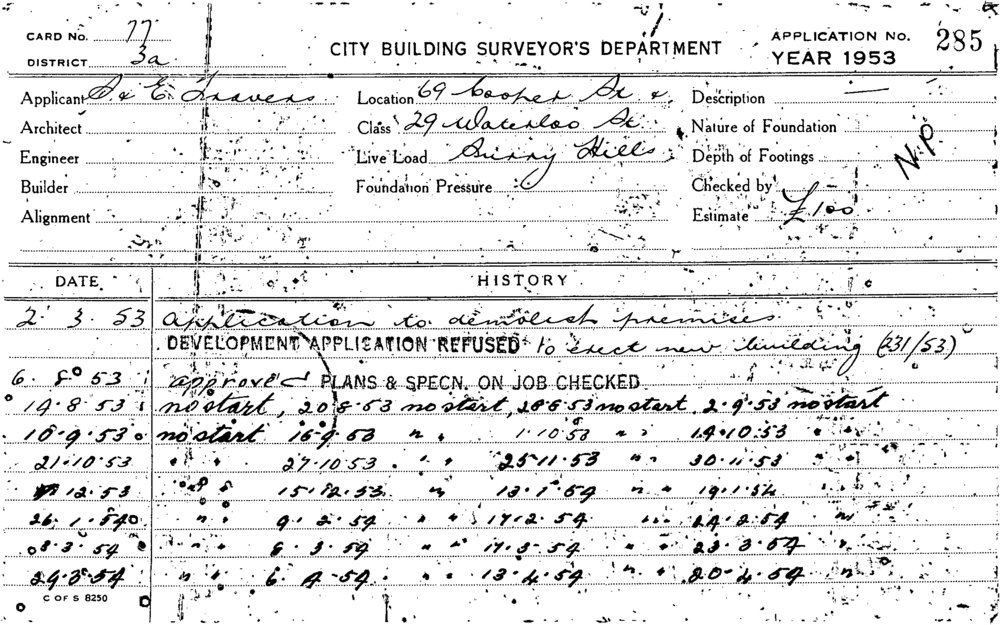 CARD No. 77
DISTRICT 3a
CITY BUILDING SURVEYOR'S DEPARTMENT
APPLICATION No. 285
YEAR 1953
Applicant S & E. Travers Location 69 Cooper St & Description —
Architect Class 29 Waterloo St. Nature of Foundation
Engineer Live Load Surry Hills Depth of Footings N.P.
Builder Foundation Pressure Checked by
Alignment Estimate £100
DATE HISTORY
2 3 53 Application to demolish premises
DEVELOPMENT APPLICATION REFUSED to erect new building (231/53)
6. 8 53 approved PLANS & SPECN. ON JOB CHECKED
14.8.53 no start, 20.8.53 no start, 28.8.53 no start, 2.9.53 no start
10.9.53 no start 16.9.53 " " 1.10.53 " " 14.10.53 " "
21.10.53 " " 27.10.53 " " 25.11.53 " " 30.11.53 " "
12.53 " " 15.12.53 " " 13.1.54 " " 19.1.54 " "
26.1.54 " " 9.2.54 " " 17.2.54 " " 24.2.54 " "
3.54 " " 3.54 " " 17.3.54 " " 23.3.54 " "
29.3.54 " " 6.4.54 " " 13.4.54 " " 20.4.54 "
C OF S 8250